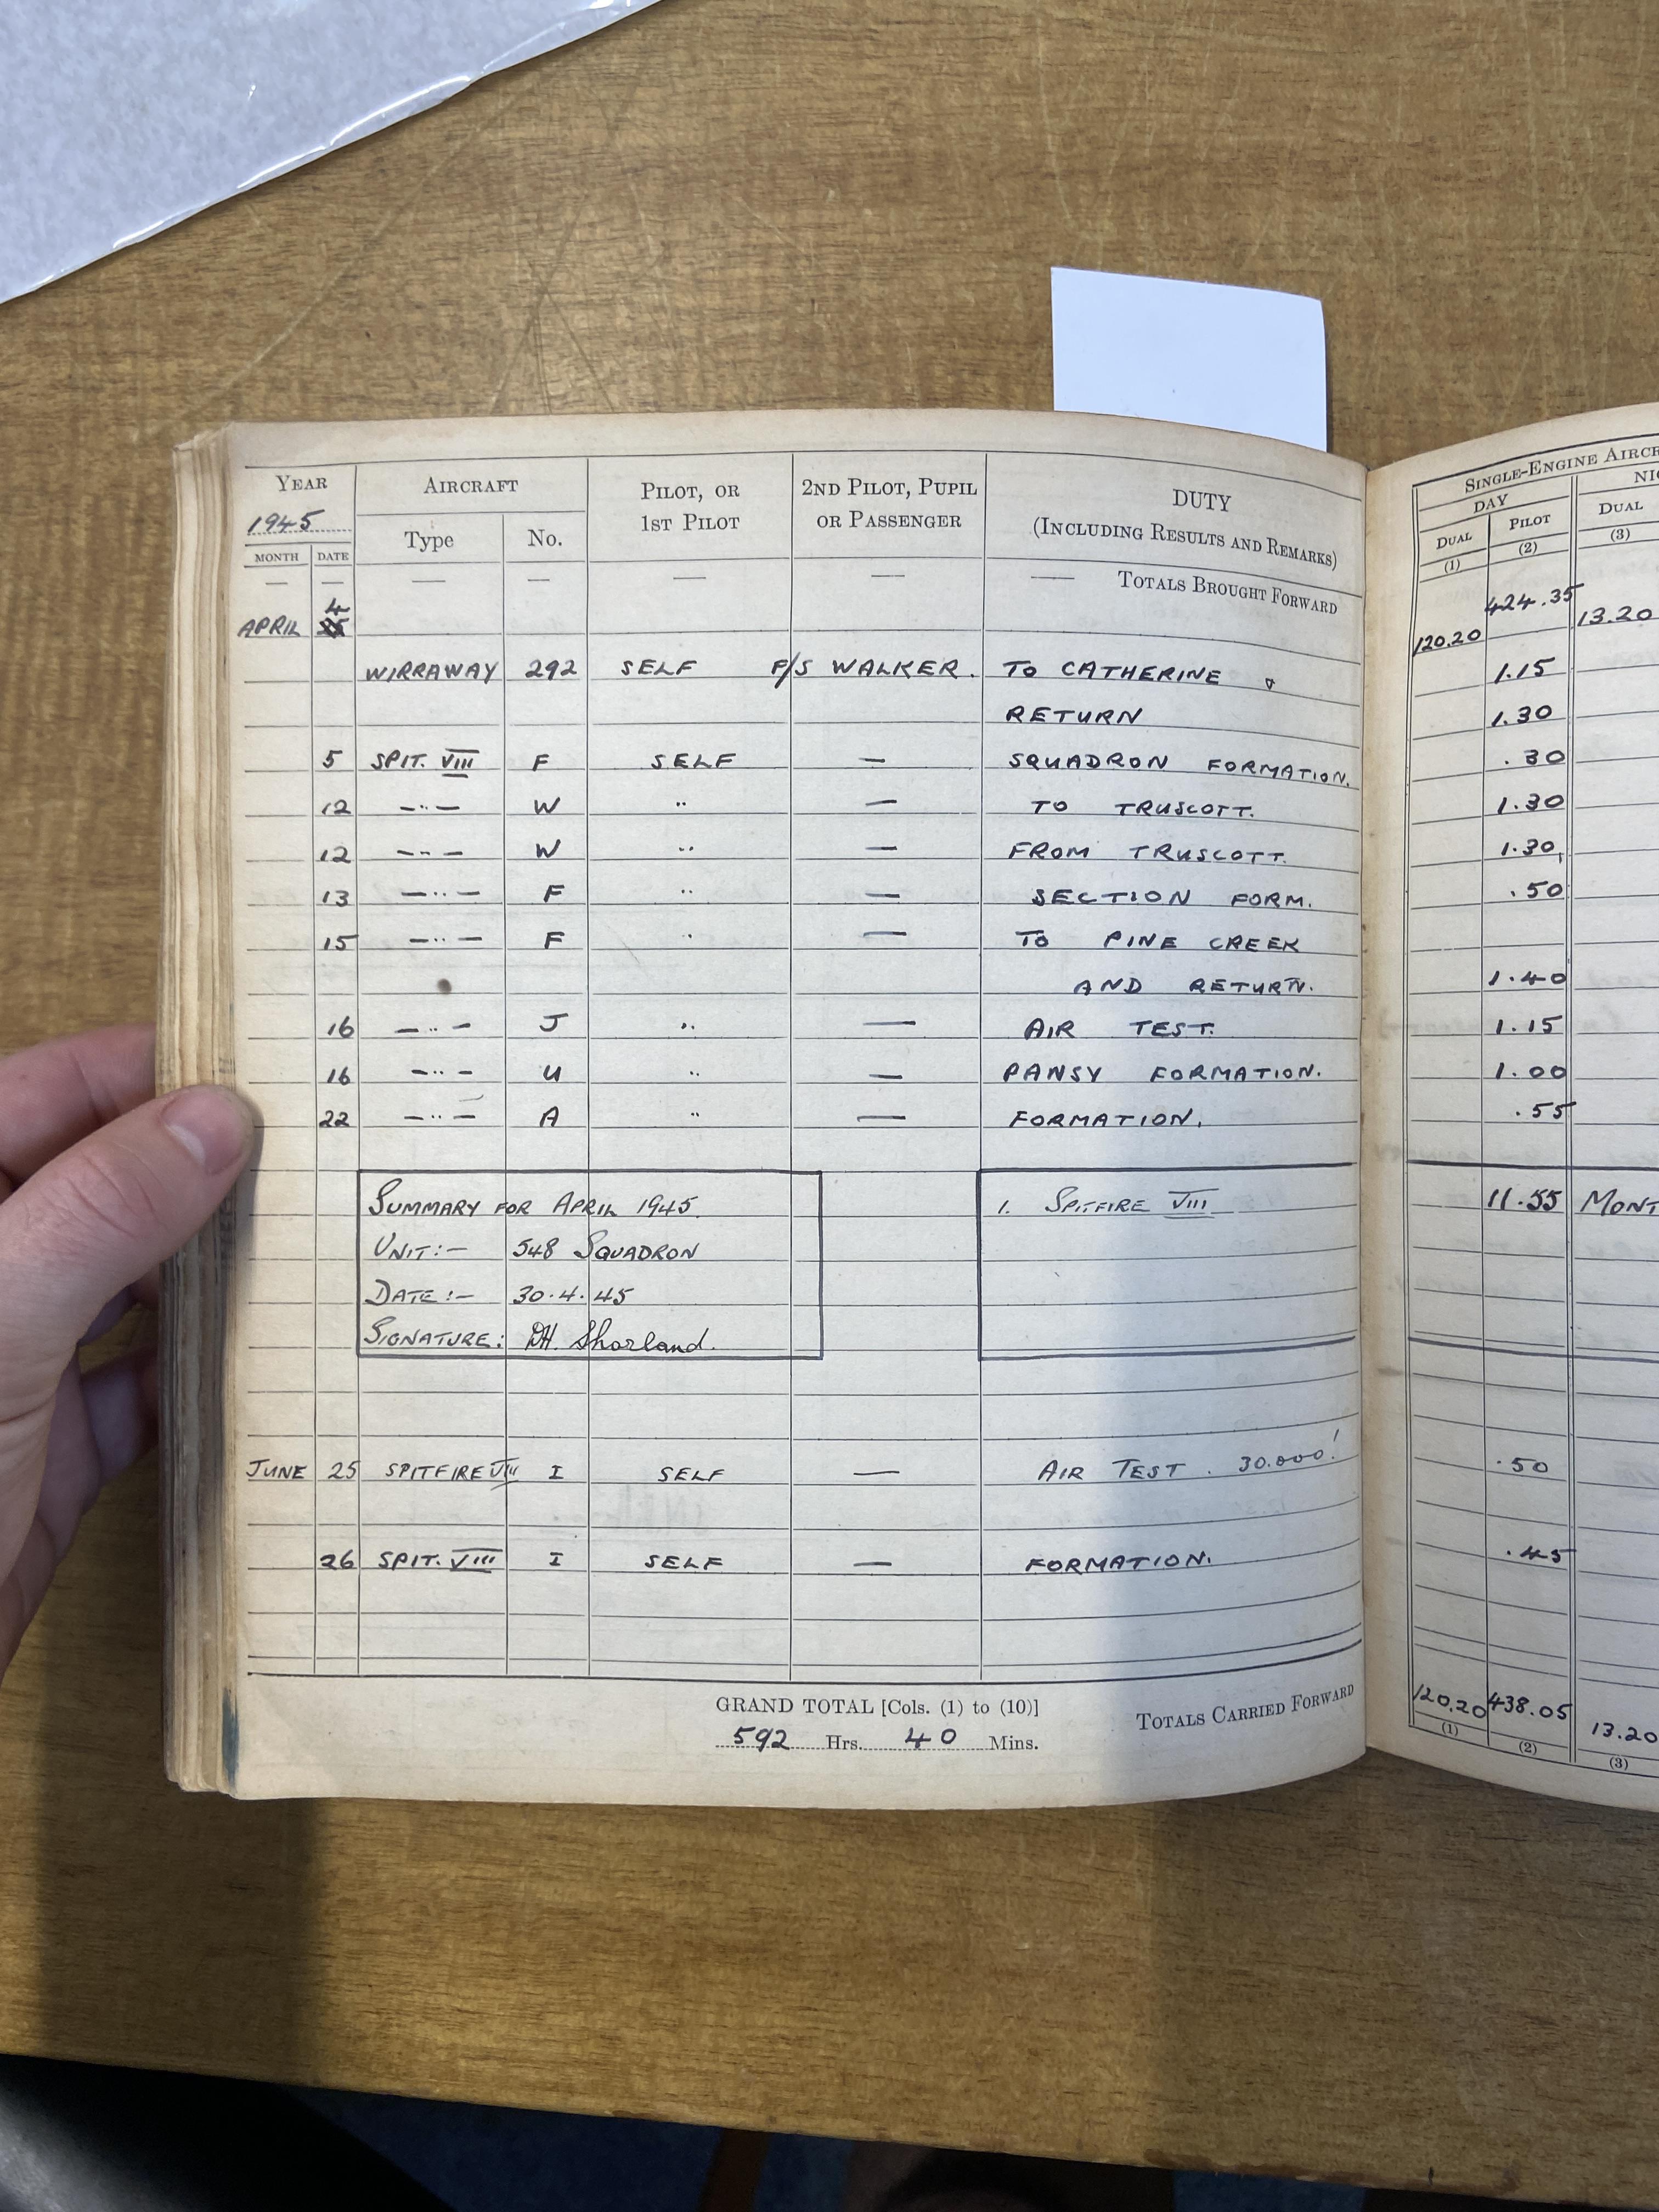 YEAR AIRCRAFT PILOT, OR 2ND PILOT, PUPIL DUTY SINGLE-ENGINE
1945 1ST PILOT OR PASSENGER (INCLUDING RESULTS AND REMARKS) DAY
MONTH DATE Type No. DUAL PILOT DUAL
(1) (2) (3)
— — — — — — — TOTALS BROUGHT FORWARD
APRIL 4 120.20 424.35 13.20
WIRRAWAY 292 SELF F/S WALKER. TO CATHERINE & 1.15
RETURN 1.30
5 SPIT. VIII F SELF — SQUADRON FORMATION. .30
12 —··— W ·· — TO TRUSCOTT. 1.30
12 —··— W ·· — FROM TRUSCOTT. 1.30
13 —··— F ·· — SECTION FORM. .50
15 —··— F ·· — TO PINE CREEK
AND RETURN. 1.40
16 —··— J ·· — AIR TEST. 1.15
16 —··— U ·· — PANSY FORMATION. 1.00
22 —··— A ·· — FORMATION. .55
SUMMARY FOR APRIL 1945. 1. SPITFIRE VIII 11.55
UNIT:- 548 SQUADRON
DATE:- 30.4.45
SIGNATURE: DH. Shorland.
JUNE 25 SPITFIRE VIII I SELF — AIR TEST. 30.000! .50
26 SPIT. VIII I SELF — FORMATION. .45
GRAND TOTAL [Cols. (1) to (10)] TOTALS CARRIED FORWARD 120.20 438.05 13.20
592 Hrs. 40 Mins. (1) (2) (3)